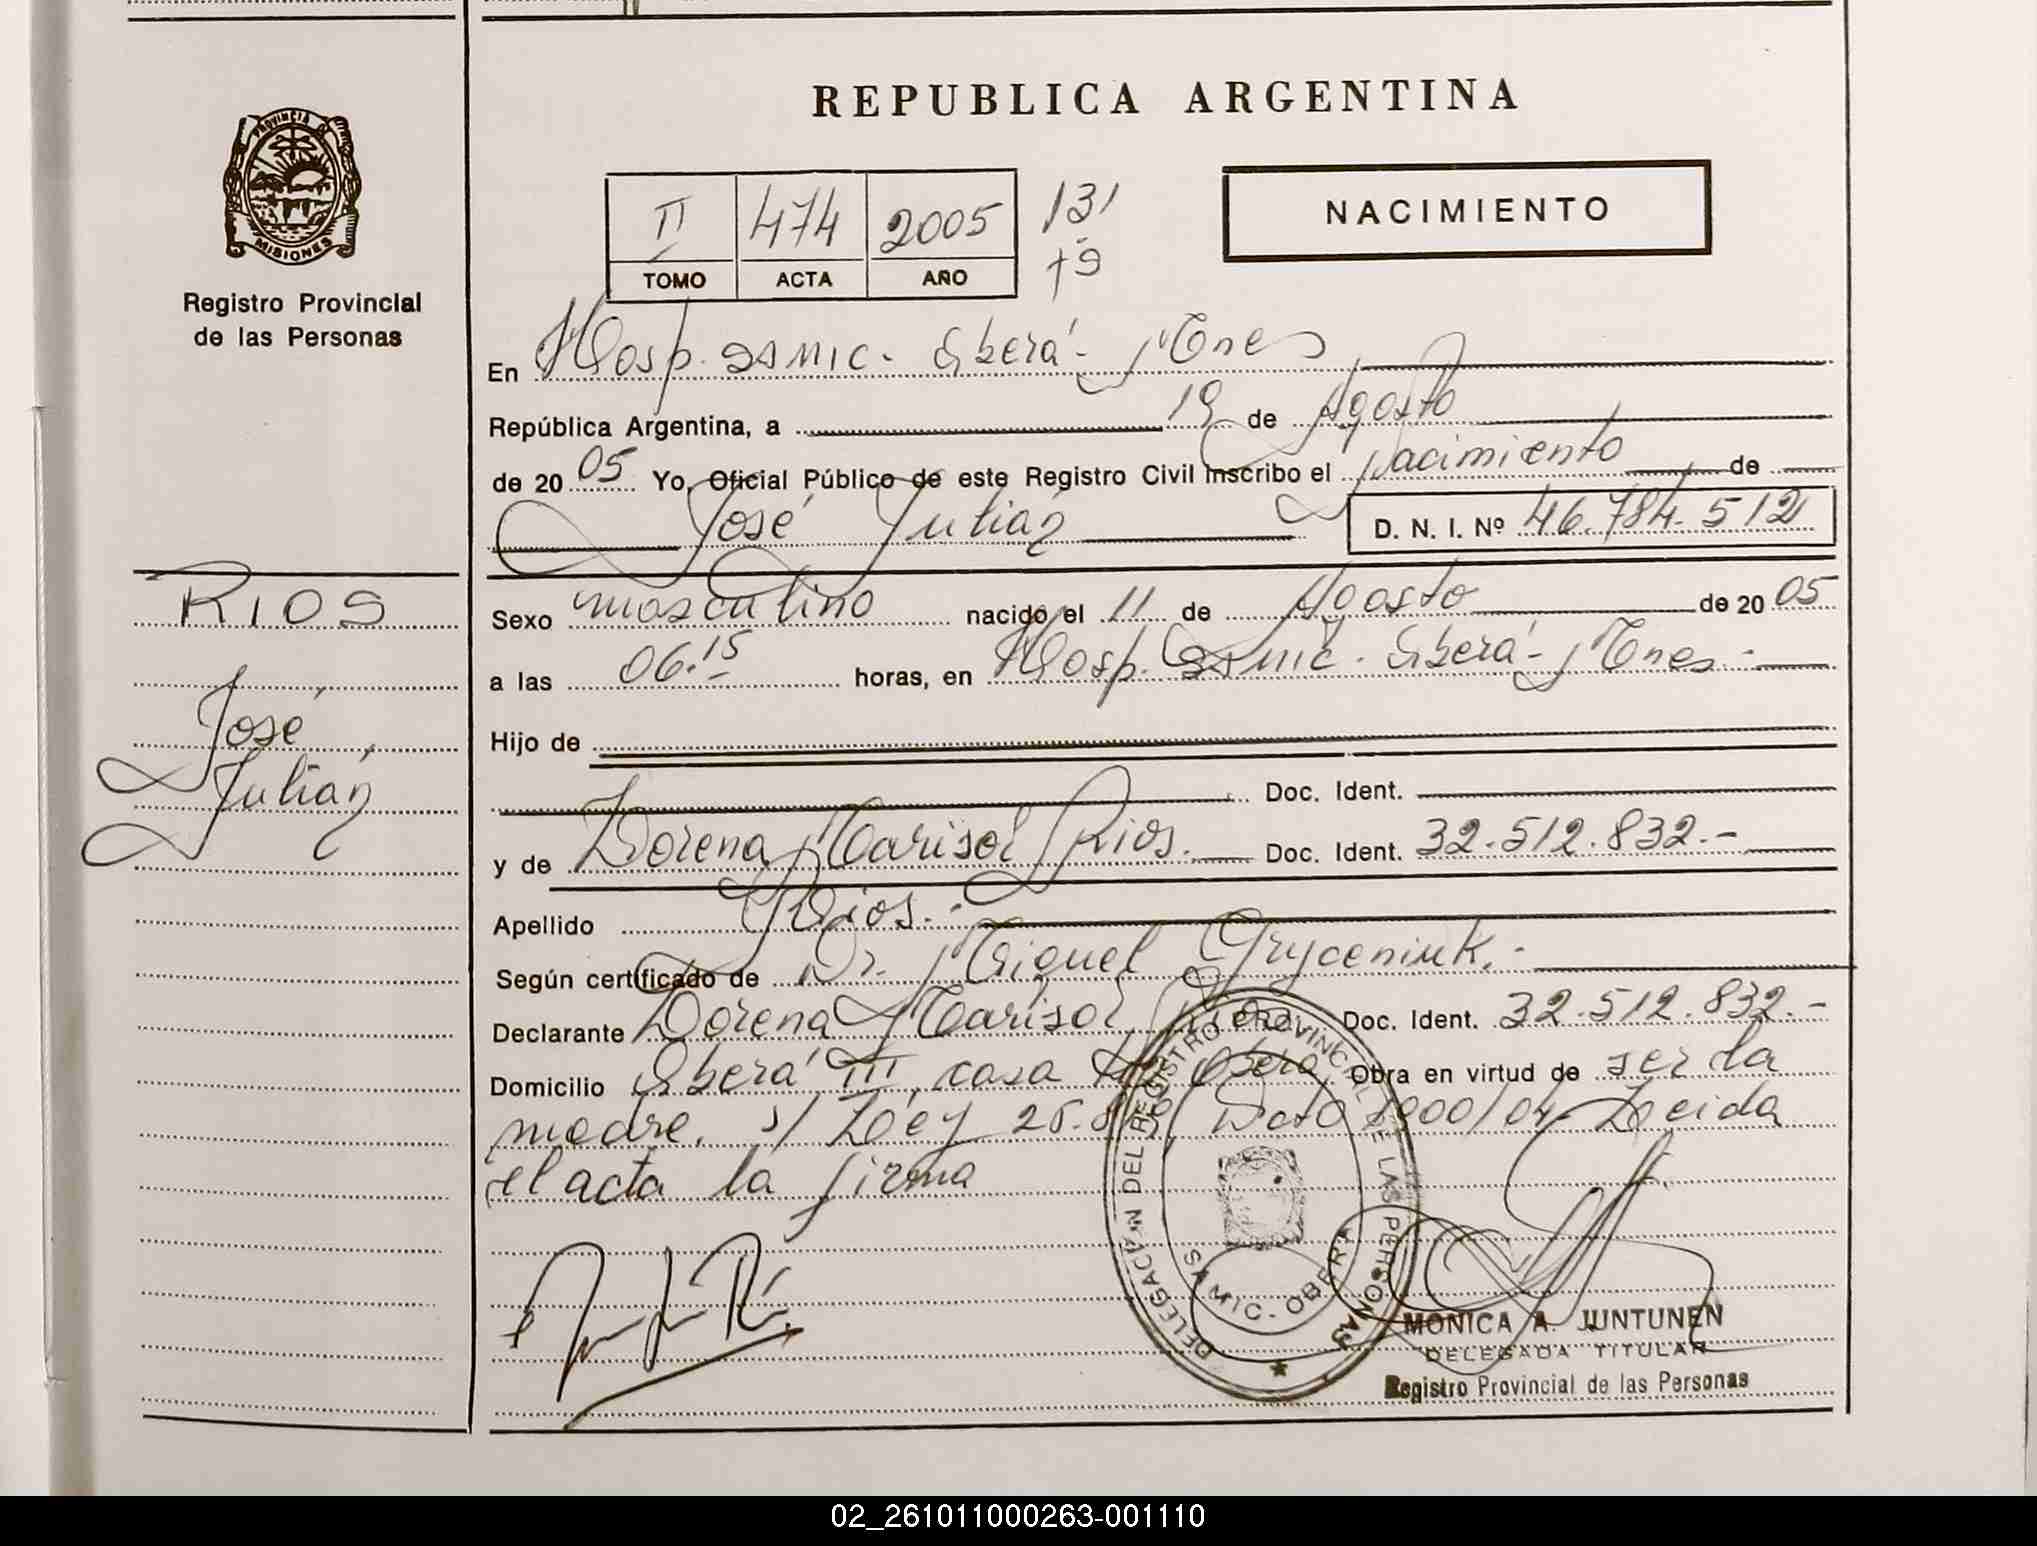 REPUBLICA ARGENTINA
PROVINCIA DE
MISIONES
Registro Provincial
de las Personas
II 474 2005 131
TOMO ACTA AÑO
NACIMIENTO
En Hosp. SAMIC. Oberá - Mnes
República Argentina, a 19 de Agosto
de 20 05 Yo, Oficial Público de este Registro Civil Inscribo el Nacimiento de
José Julián D. N. I. Nº 46.784.512
RIOS
José
Julián
Sexo masculino nacido el 11 de Agosto de 20 05
a las 06.15 horas, en Hosp. Samic. Oberá - Mnes.-
Hijo de
Doc. Ident.
y de Lorena Marisol Rios. Doc. Ident. 32.512.832.-
Apellido Rios.-
Según certificado de Dr. Miguel Gryceniuk.-
Declarante Lorena Marisol Rios Doc. Ident. 32.512.832.-
Domicilio Oberá III, casa Oberá Obra en virtud de ser la
madre. s/ Ley Dcto 1900/04 Leida
el acta la firma
DELEGACION DEL REGISTRO PROVINCIAL DE LAS PERSONAS
SAMIC - OBERA
MONICA A. JUNTUNEN
DELEGADA TITULAR
Registro Provincial de las Personas
02_261011000263-001110